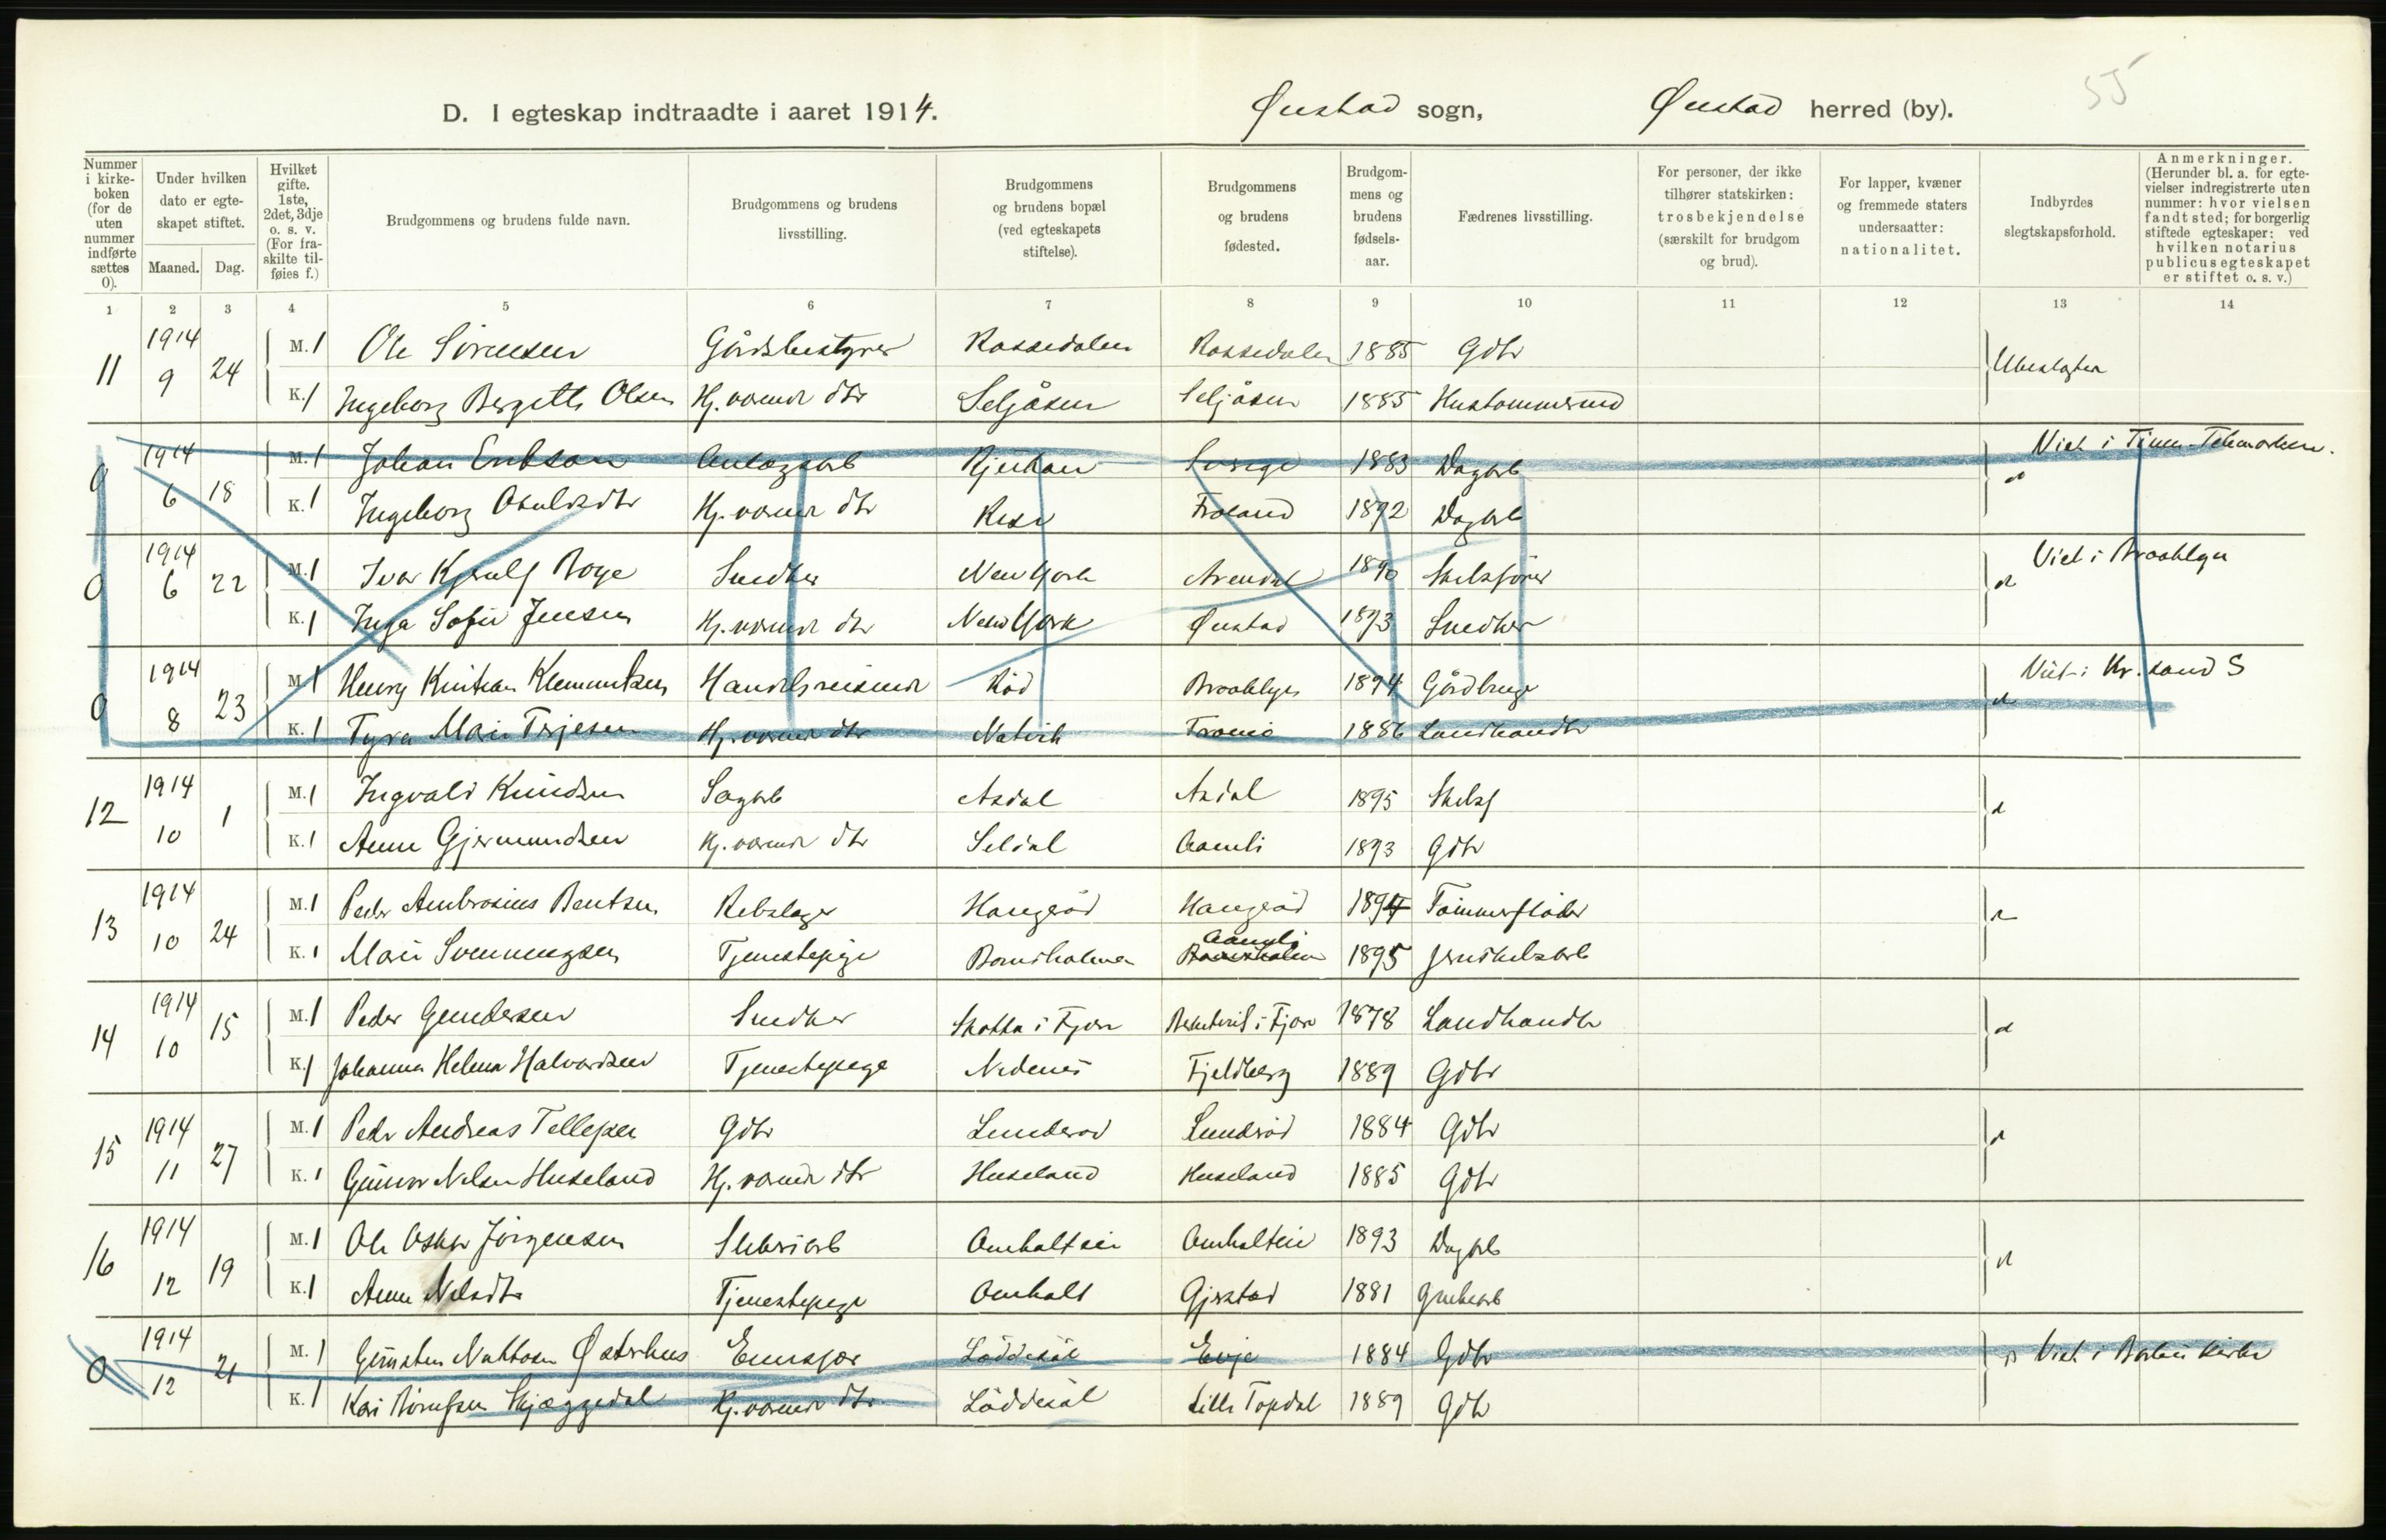 55
D. I egteskap indtraadte i aaret 1914. Øiestad sogn, Øiestad herred (by).
Nummer i kirkeboken (for de uten nummer indførte sættes 0).
Under hvilken dato er egteskapet stiftet.
Maaned. Dag.
Hvilket gifte. 1ste, 2det, 3dje o. s. v. (For fraskilte tilføies f.)
Brudgommens og brudens fulde navn.
Brudgommens og brudens livsstilling.
Brudgommens og brudens bopæl (ved egteskapets stiftelse).
Brudgommens og brudens fødested.
Brudgommens og brudens fødselsaar.
Fædrenes livsstilling.
For personer, der ikke tilhører statskirken: trosbekjendelse (særskilt for brudgom og brud).
For lapper, kvæner og fremmede staters undersaatter: nationalitet.
Indbyrdes slegtskapsforhold.
Anmerkninger. (Herunder bl. a. for egtevielser indregistrerte uten nummer: hvor vielsen fandt sted; for borgerlig stiftede egteskaper: ved hvilken notarius publicus egteskapet er stiftet o. s. v.)
1 2 3 4 5 6 7 8 9 10 11 12 13 14
11 1914 9 24 M. 1 Ole Sørensen Gårdsbestyrer Rossedalen Rossedalen 1885 Gdbr Ubeslegtet
K. 1 Ingeborg Bergette Olsen Hj. værende dtr Seljåsen Seljåsen 1885 Hustømmermd
0 1914 6 18 M. 1 Johan Erikson Anlægsarb Rjukan Sverige 1883 Dagarb Viet i Tinn Telemarken.
K. 1 Ingeborg Osuldsdtr Hj. værende dtr Froland 1892 Dagarb
0 1914 6 22 M. 1 Ivar Kjerulf Boye Snedker New York Arendal 1890 Skibsfører Viet i Brooklyn
K. 1 Inga Sofie Jensen Hj. værende dtr New York Øiestad 1893 Snedker
0 1914 8 23 M. 1 Henry Kristian Klemmentsen Handelsreisende Rød Brooklyn 1894 Gårdbruger Viet i Kr.sand S
K. 1 Tyra Marie Terjesen Hj. værende dtr Natvik Tromø 1886 Landhandler
12 1914 10 1 M. 1 Ingvald Knudsen Sagarb Asdal Asdal 1895 Skibsf
K. 1 Anne Gjermundsen Hj. værende dtr Seldal Aamli 1893 Gdbr
13 1914 10 24 M. 1 Peder Ambrosius Bentsen Rebslager Haugerød Haugerød 1894 Tømmerfløder
K. 1 Marie Svenningsen Tjenestepige Bomsholmen Aamli 1895 Jernskibsarb
14 1914 10 15 M. 1 Peder Gundersen Snedker i Fjære i Fjære 1878 Landhandler
K. 1 Johanne Helene Halvardsen Tjenestepige Nedenes Fjeldberg 1889 Gdbr
15 1914 11 27 M. 1 Peder Andreas Tellefsen Gdbr Lunderød Lunderød 1884 Gdbr
K. 1 Gunvor Nilsen Huseland Hj. værende dtr Huseland Huseland 1885 Gdbr
16 1914 12 19 M. 1 Ole Oskar Jørgensen Sliberiarb Omholteie Omholteie 1893 Dagarb
K. 1 Anne Nilsdtr Tjenestepige Omholt Gjerstad 1881 Grubearb
0 1914 12 21 M. 1 Gunsten Østerhus Løddesøl Evje 1884 Gdbr Viet i kirke
K. 1 Kari Skjeggedal Hj. værende dtr Løddesøl Lille Topdal 1889 Gdbr